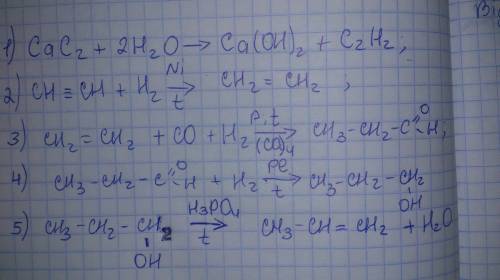 1) CaC₂ + 2H₂O → Ca(OH)₂ + C₂H₂;
2) CH ≡ CH + H₂ →(Ni, t) CH₂ = CH₂ ;
3) CH₂ = CH₂ + CO + H₂ →(P, t, (CO)₄) CH₃ – CH₂ – C(=O)H;
4) CH₃ – CH₂ – C(=O)H + H₂ →(t) CH₃ – CH₂ – CH₂
OH
5) CH₃ – CH₂ – CH₂ →(H₃PO₄, t) CH₃ – CH = CH₂ + H₂O
OH